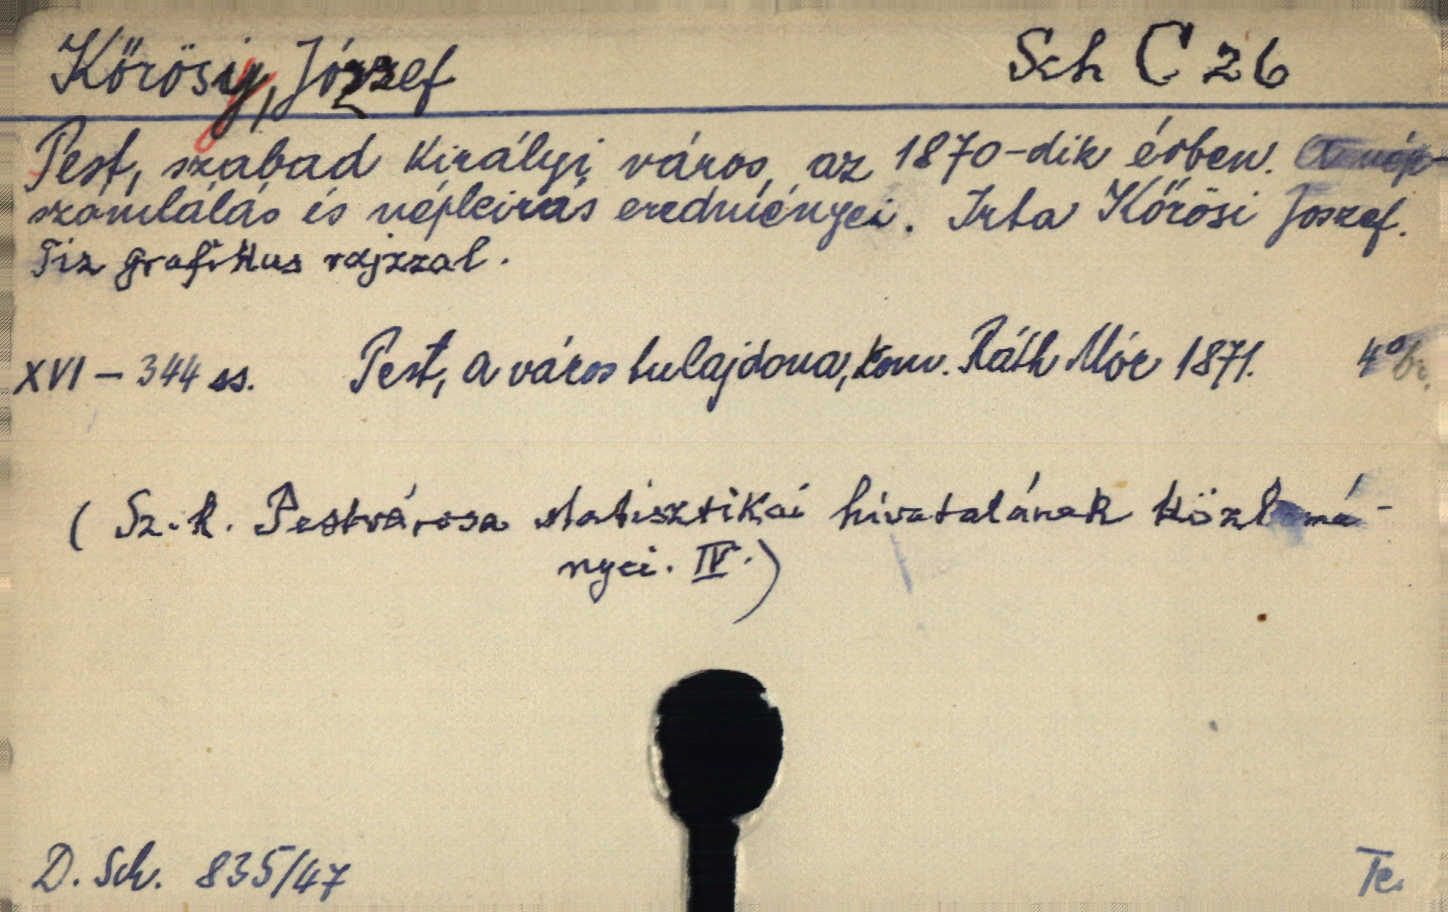 Kőrösy, József Sch C 26
Pest, szabad királyi város, az 1870-dik évben. A nép-
szamlálás és népleirás eredményei. Irta Kőrösi Joszef.
Tiz grafikus rajzzal.
XVI - 344 ss. Pest, a város tulajdona, kom. Ráth Mór 1871. 4° br.
(Sz. k. Pestvárosa statisztikai hivatalának közlemé-
nyei. IV.)
D. Sch. 835/47 Te.